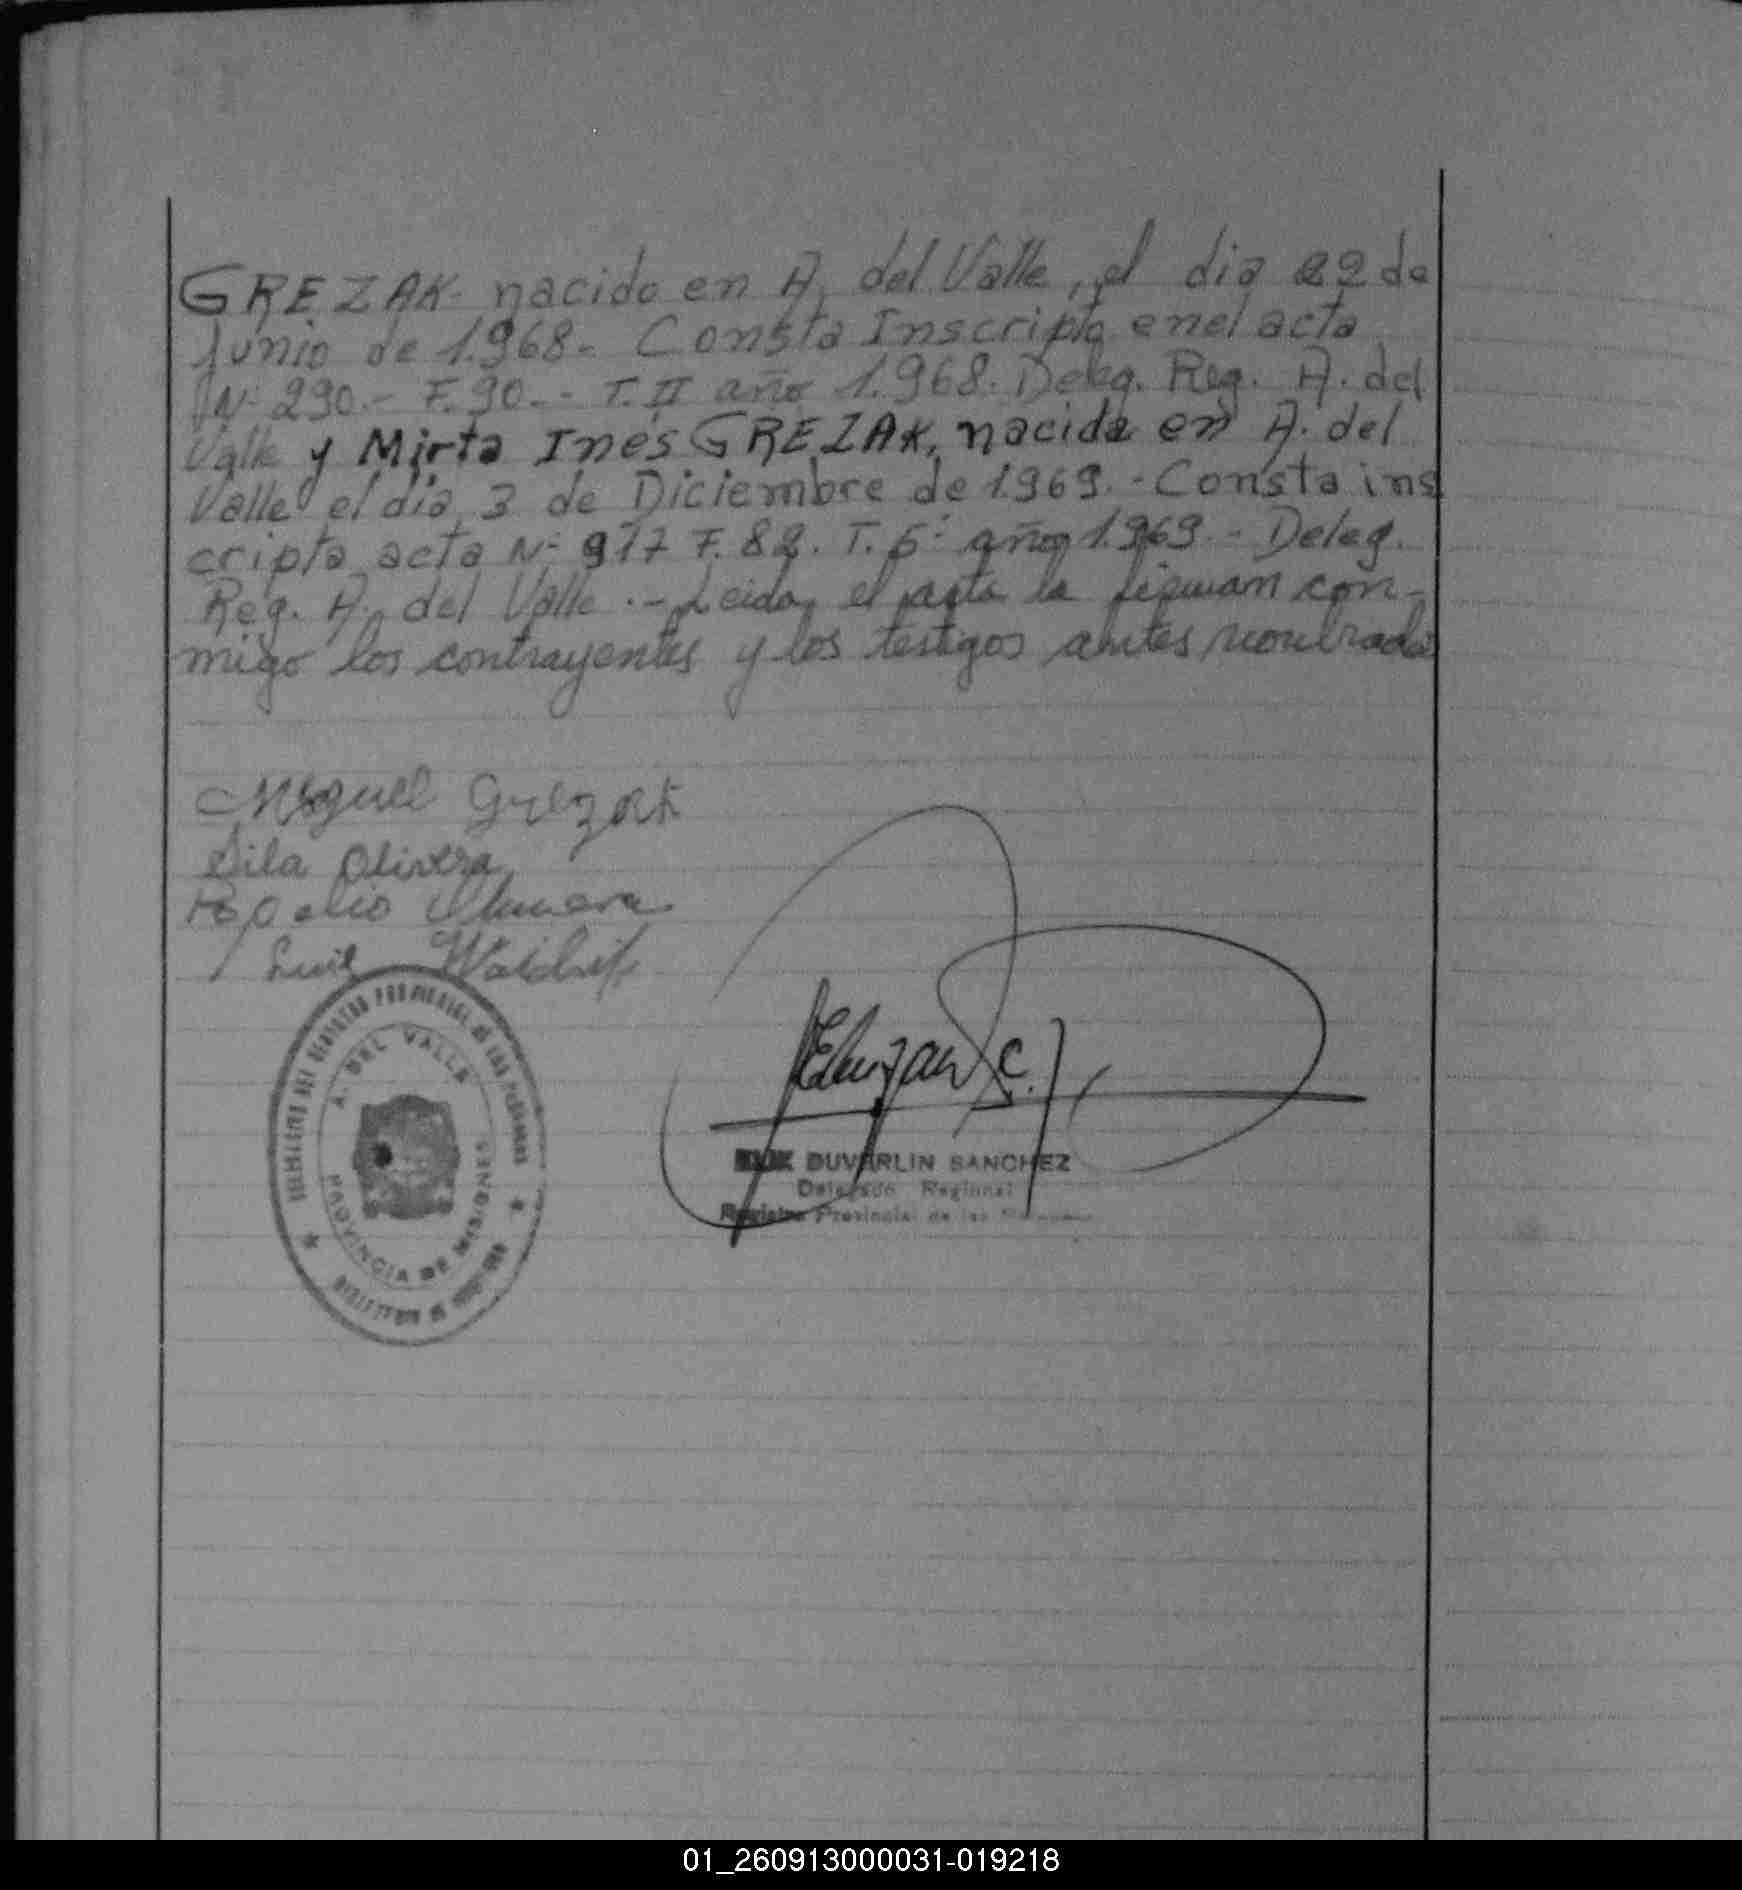 GREZAK nacido en A. del Valle, el dia 22 de
Junio de 1.968.- Consta Inscripto en el acta
Nº 290.- F. 90.-- T. II año 1.968. Deleg. Reg. A. del
Valle y Mirta Inés GREZAK, nacida en A. del
Valle el dia 3 de Diciembre de 1969.- Consta ins
cripta acta Nº 977 F. 82. T. 5º año 1.969.- Deleg.
Reg. A. del Valle.- Leida el acta la firman con-
migo los contrayentes y los testigos antes nombrados
Miguel Grezak
Sila Olivera
Luis
REGISTRO PROVINCIAL DE LAS PERSONAS
A. DEL VALLE
PROVINCIA DE MISIONES
DUVERLIN SANCHEZ
Delegado Regional
Registro Provincial de las Personas
01_260913000031-019218